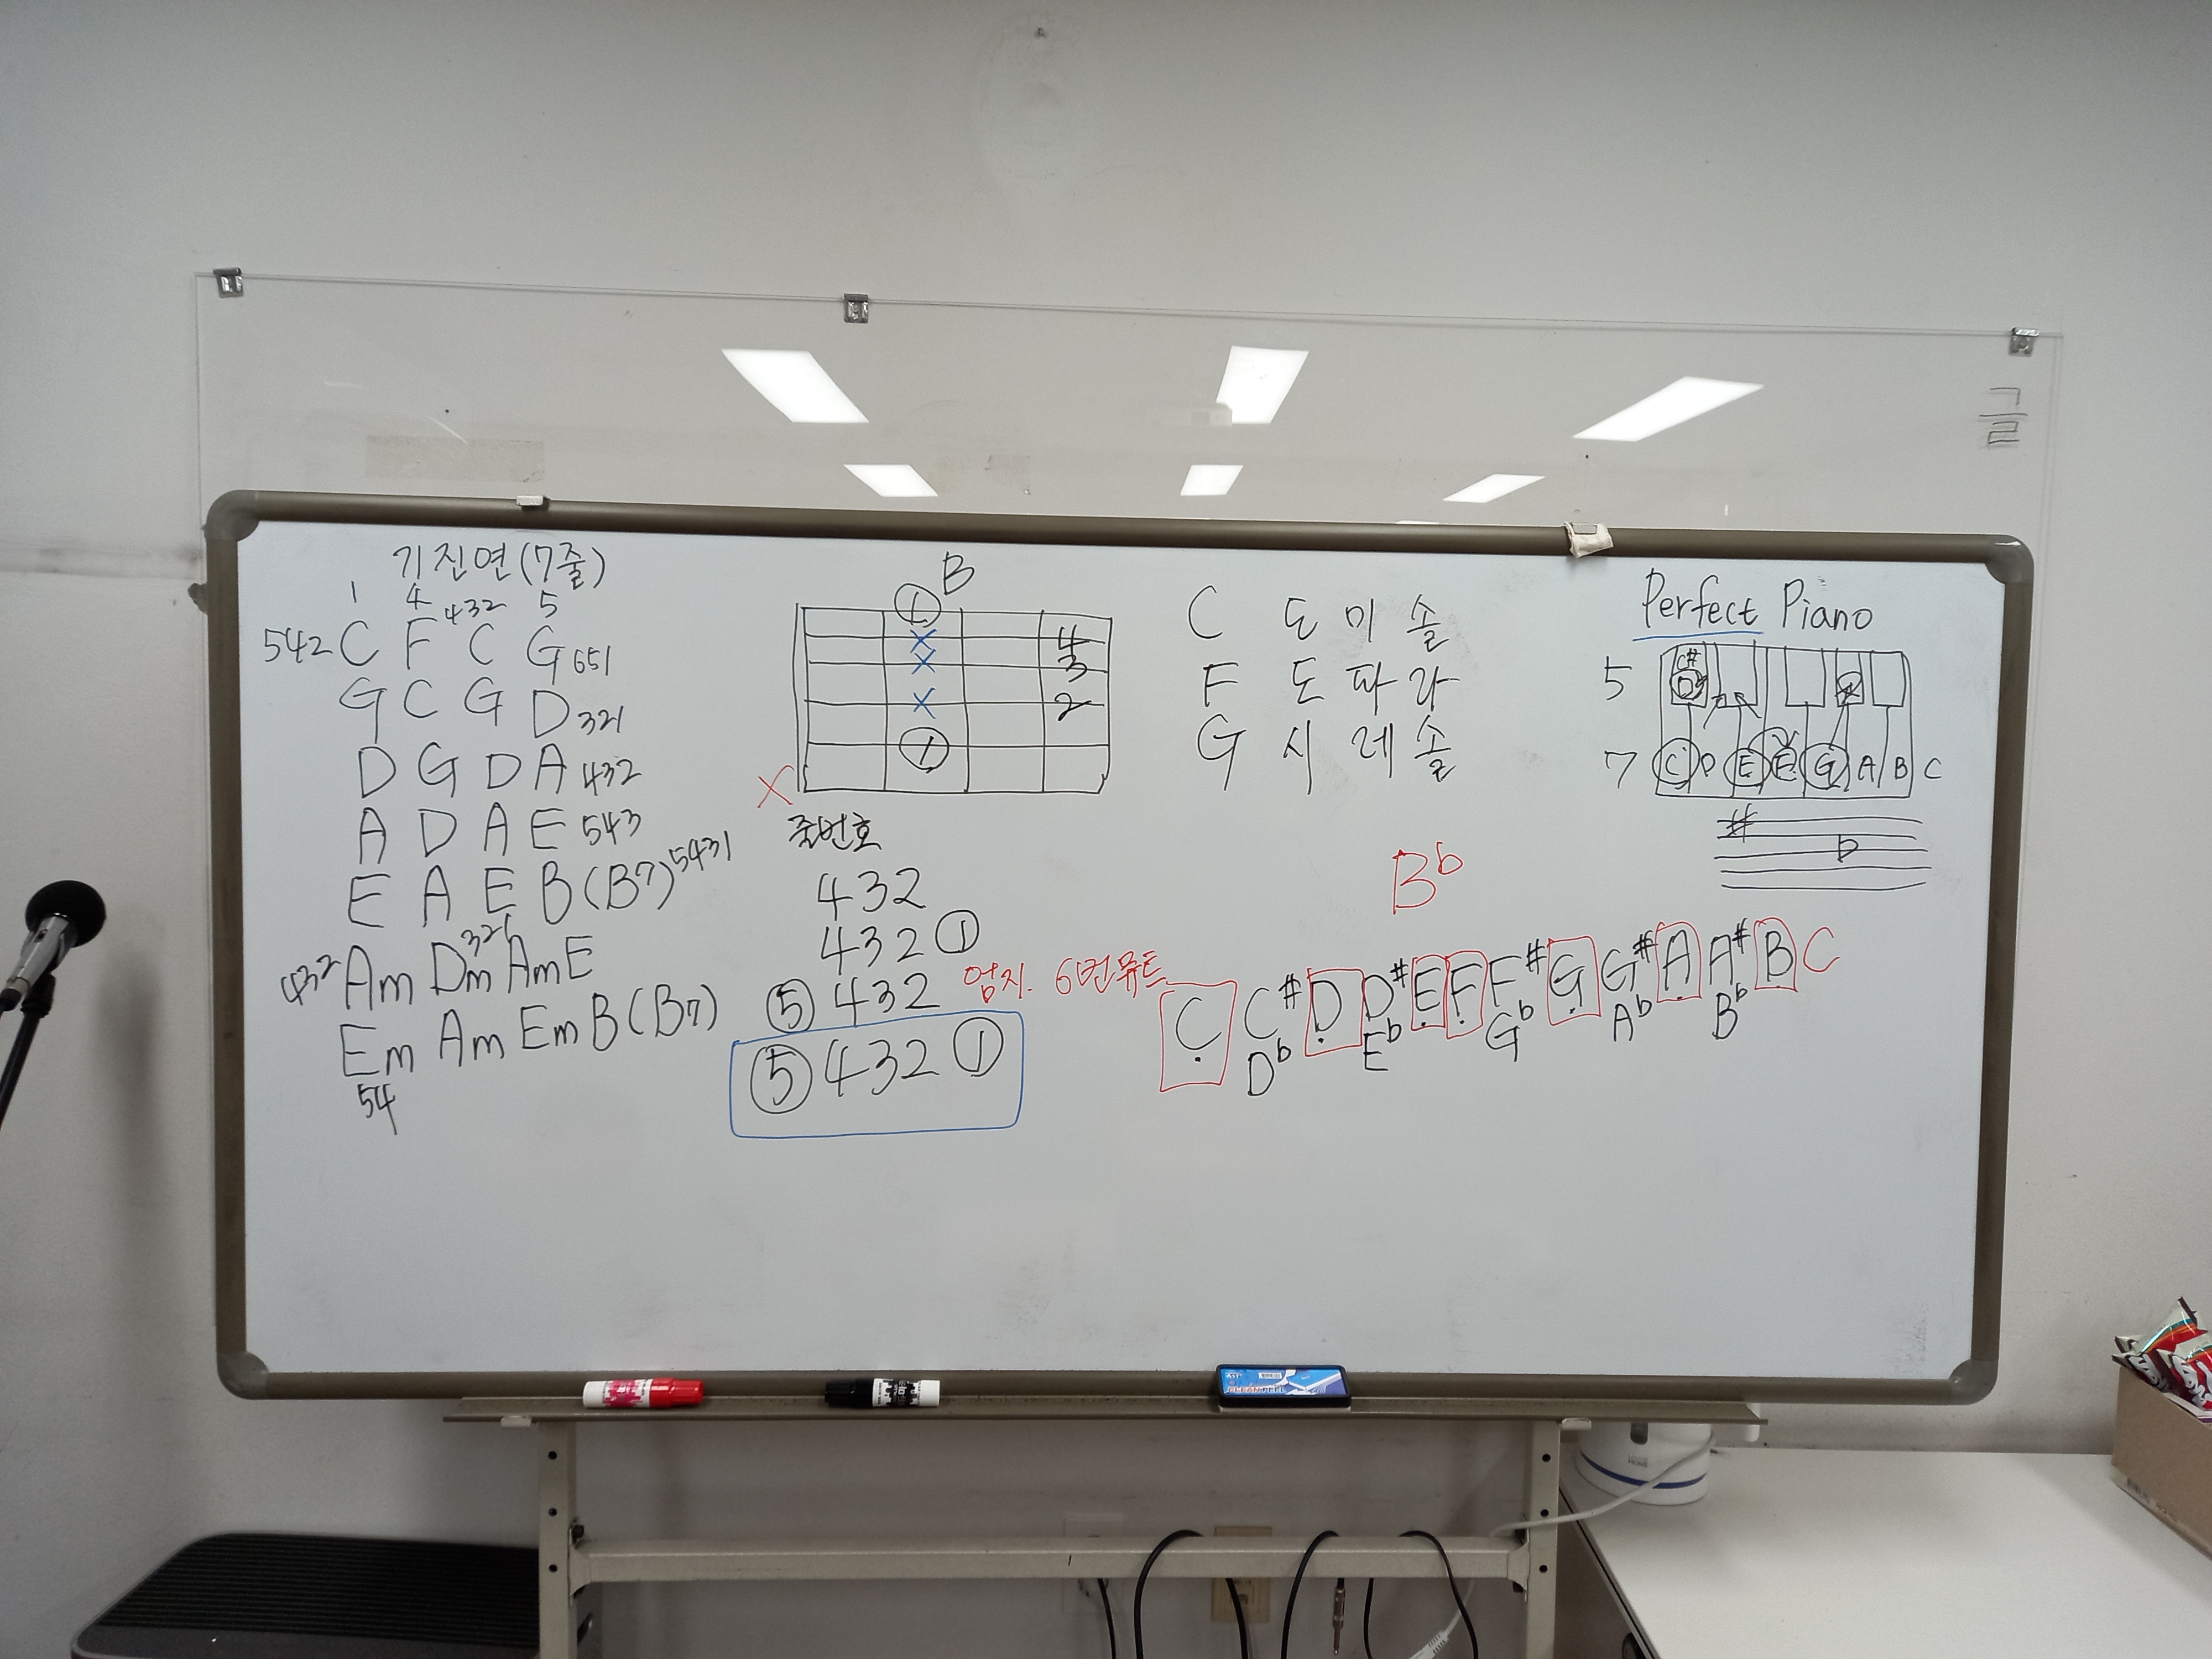 글
기진연(7줄)
1 4 432 5
542 C F C G 651
G C G D 321
D G D A 432
A D A E 543
E A E B(B7) 5431
432 Am Dm 321 Am E
Em Am Em B(B7)
54
B
1
X
X 4
X 3
X 2
1
X
줄번호
432
432 ①
⑤ 432
⑤ 432 ①
엄지. 6번뮤트
C 도 미 솔
F 도 파 라
G 시 레 솔
Perfect Piano
5 C#
D♭
7 C D E F G A B C
#
b
B♭
C C# D D# E F F# G G# A A# B C
D♭ E♭ G♭ A♭ B♭